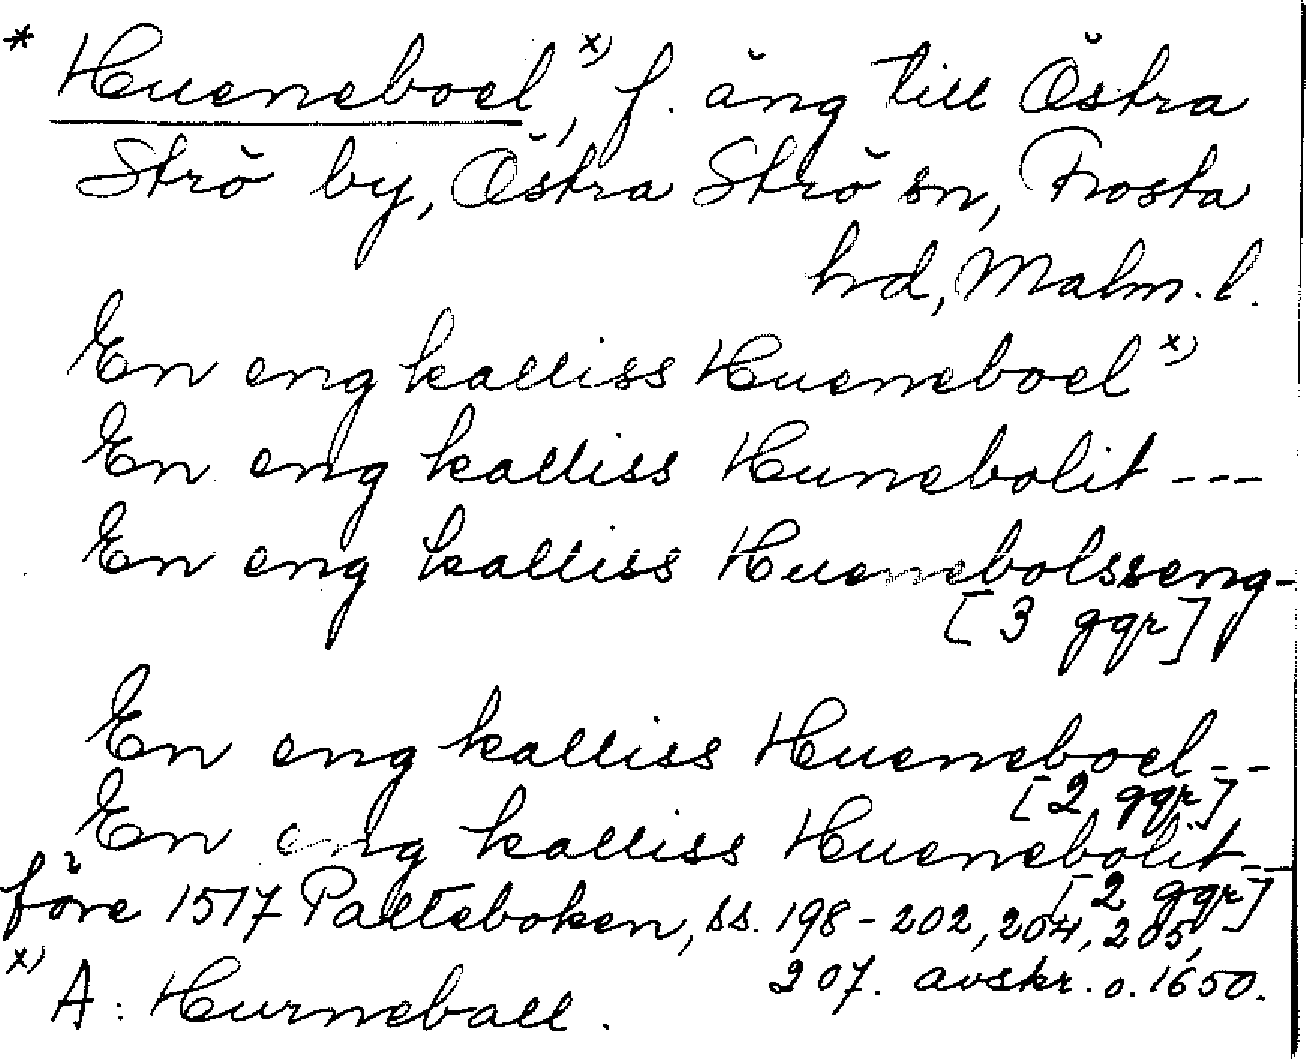 * Hueneboel,x) f. äng till Östra
Strö by, Östra Strö sn, Frosta
hd, Malm. l.
En eng kalliss Hueneboelx)
En eng kalliss Hunebolit ---
En eng kalliss Huenebolsseng-
[3 ggr]
En eng kalliss Hueneboel--
[2 ggr]
En eng kalliss Huenebolit--
[2 ggr]
före 1517 Palteboken, ss. 198-202, 204, 205,
207. avskr. o. 1650.
x) A: Hurneball.